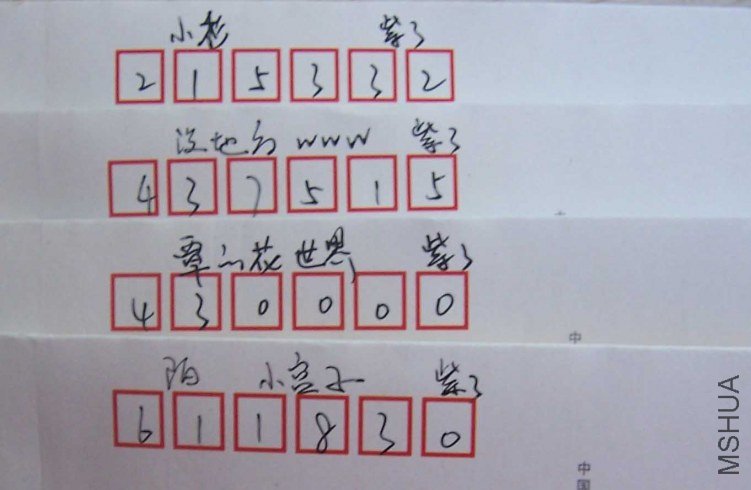 小彬 紫了
215332
没地方 www 紫了
437515
覃的花世界 紫了
430000
阳 小宝子 紫了
611830
中
中国
MSHUA